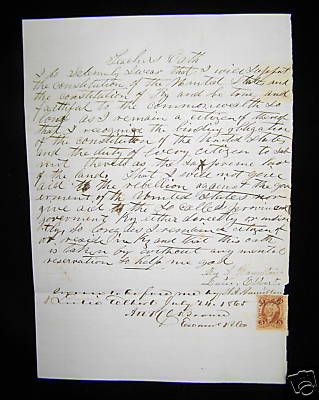 Teachers Oath
I do Solemnly Swear that I will Support
the constitution of the United States and
the constitution of Ky and be true and
faithful to the commonwealth so
long as I remain a citizen thereof
that I recognize the binding obligation
of the constitution of the United States
and the duty of Every citizen to sub
mit thereto as the Supreme law
of the land. That I will not give
aid to the rebellion against the gov
ernment of the United States nor
give aid to the
government of Ky either directly or indirec
tly so long as I remain a citizen of
or reside in Ky and that this oath
is taken by without any mental
reservation So help me god.
Hamilton
sworn to before me by Hamilton
& July 24 1865